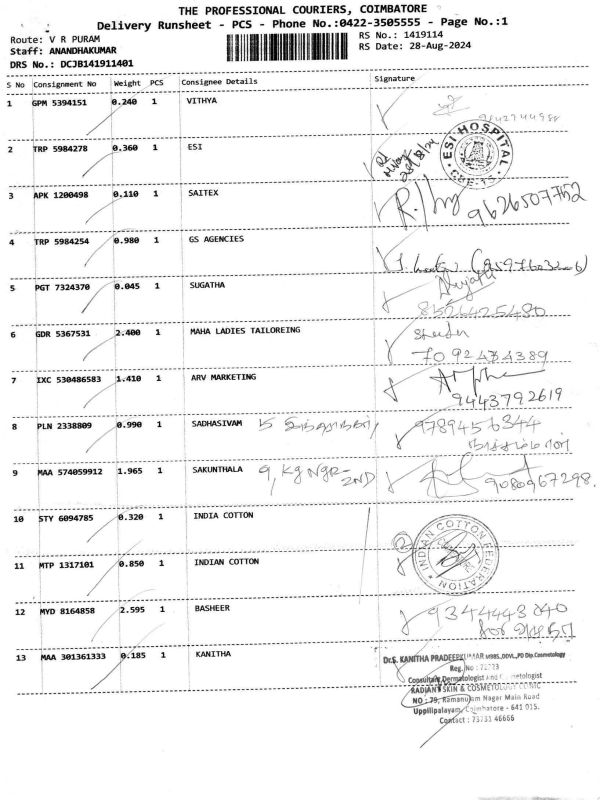 THE PROFESSIONAL COURIERS, COIMBATORE
Delivery Runsheet - PCS - Phone No.:0422-3505555 - Page No.:1
Route: V R PURAM
RS No.: 1419114
Staff: ANANDHAKUMAR
RS Date: 28-Aug-2024
DRS No.: DCJB141911401
S No Consignment No Weight PCS Consignee Details Signature
1 GPM 5394151 0.240 1 VITHYA
2 TRP 5984278 0.360 1 ESI
28/8/24
ESI HOSPITAL
3 APK 1200498 0.110 1 SAITEX
9626507752
4 TRP 5984254 0.980 1 GS AGENCIES
5 PGT 7324370 0.045 1 SUGATHA
8526425480
6 GDR 5367531 2.400 1 MAHA LADIES TAILOREING
7092434389
7 IXC 530486583 1.410 1 ARV MARKETING
9443792619
8 PLN 2338809 0.990 1 SADHASIVAM
9789456344
9 MAA 574059912 1.965 1 SAKUNTHALA 9, Kg Ngr- 2ND
9080967298.
10 STY 6094785 0.320 1 INDIA COTTON
11 MTP 1317101 0.850 1 INDIAN COTTON
INDIAN COTTON FEDERATION
12 MYD 8164858 2.595 1 BASHEER
9344443040
13 MAA 301361333 0.185 1 KANITHA
Dr.S. KANITHA PRADEEPKUMAR MBBS.,DDVL.,PD Dip.Cosmetology
Reg. No :
Consultant Dermatologist And Cosmetologist
RADIANT SKIN & COSMETOLOGY CLINIC
NO : 79, Ramanujam Nagar Main Road
Uppilipalayam, Coimbatore - 641 015.
Contact : 73731 46666